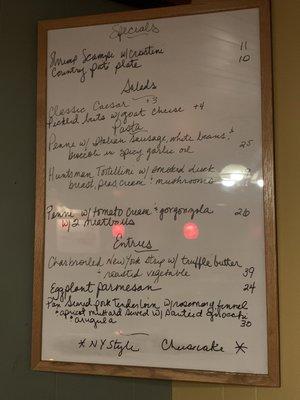 Specials
Shrimp Scampi w/crostini 11
Country pate plate 10
Salads
Classic Caesar +3
Pickled beets w/goat cheese +4
Pasta
Penne w/ Italian Sausage, white beans, +
broccoli in spicy garlic oil 25
Huntsman Tortellini w/ smoked duck
breast, peas, cream + mushrooms
Penne w/ tomato cream + gorgonzola 26
w/2 meatballs
Entrees
Charbroiled New York strip w/ truffle butter
+ roasted vegetable 39
Eggplant parmesan 24
Pan Seared pork tenderloin w/rosemary, fennel
+ apricot mustard served w/ Sauteed gnocchi
+ arugula 30
* NY Style Cheesecake *